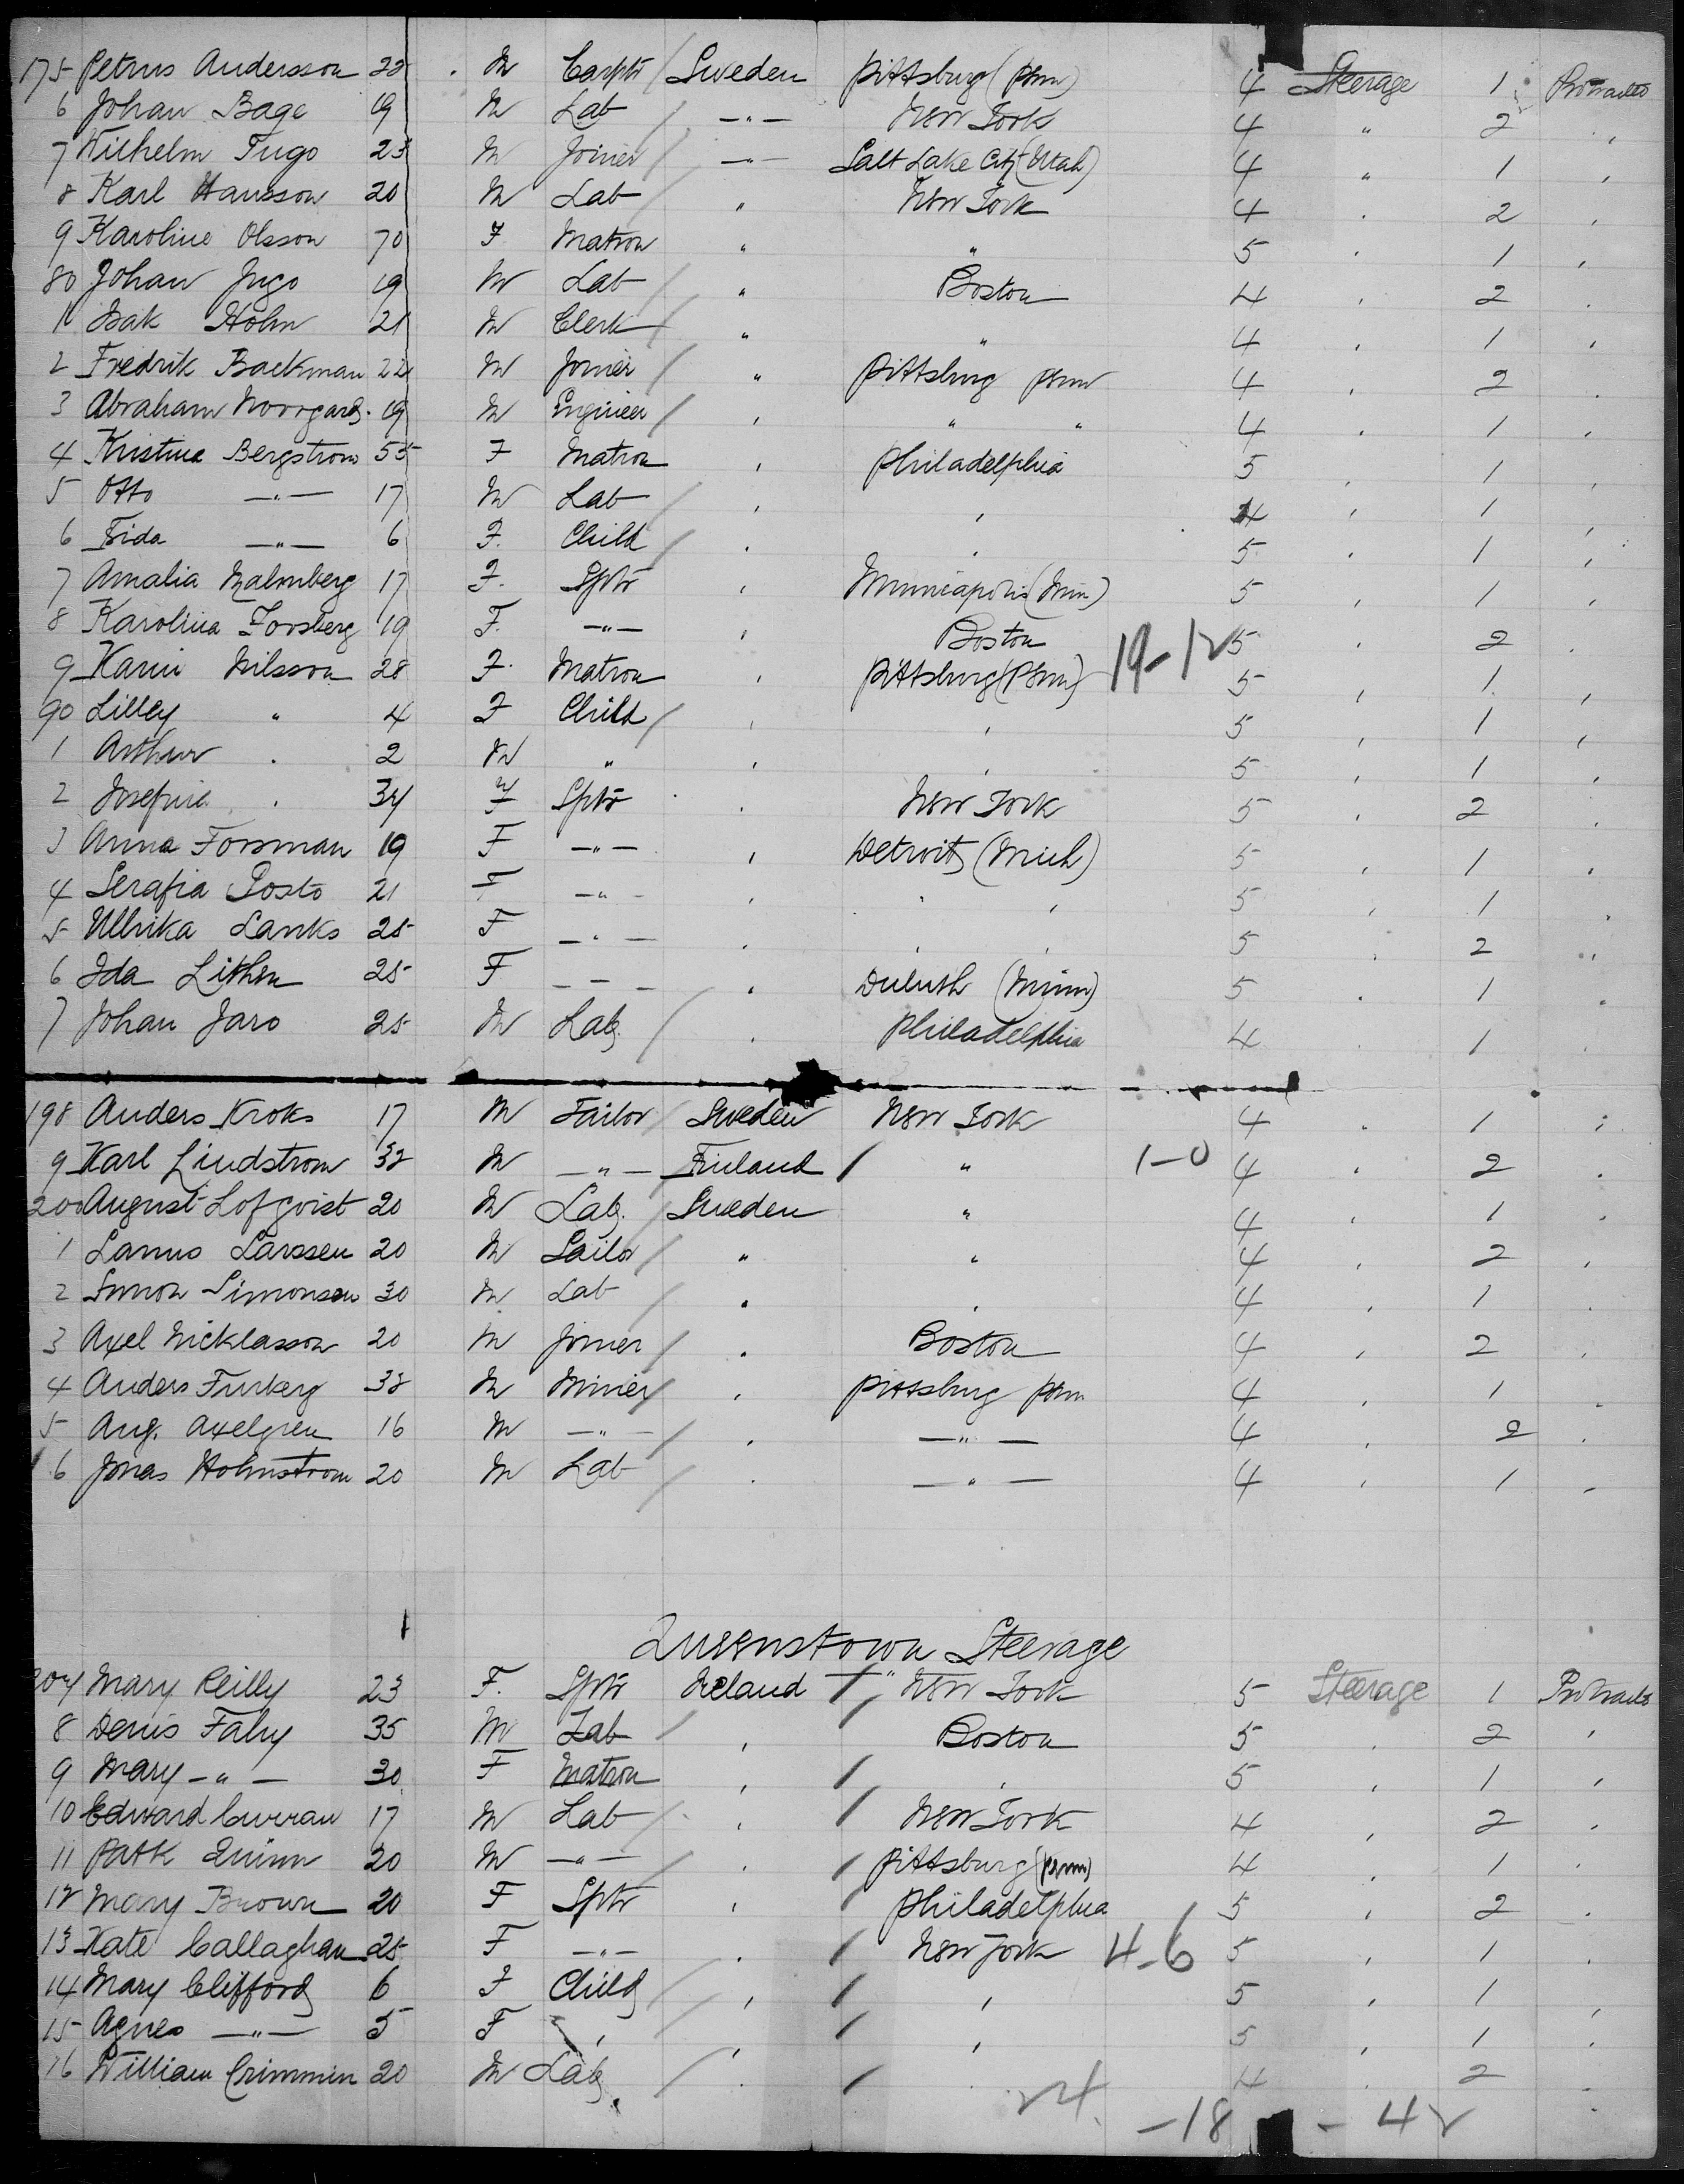 175 Petrus Andersson 22 M Carptr / Sweden Pittsburg (Penn) 4 Steerage 1 Protracted
6 Johan Bage 19 M Lab / —"— New York 4 " 2 "
7 Wilhelm Tugo 23 M Joiner / —"— Salt Lake City (Utah) 4 " 1 "
8 Karl Hansson 20 M Lab / " New York 4 " 2 "
9 Karoline Olsson 70 F Matron " " 5 " 1 "
80 Johan Jugo 19 M Lab / " Boston 4 " 2 "
1 Isak Holm 21 M Clerk / " " 4 " 1 "
2 Fredrik Backman 22 M Joiner / " Pittsburg Penn 4 " 2 "
3 Abraham Norrgard 19 M Engineer / " " " 4 " 1 "
4 Kristina Bergstrom 55 F Matron " Philadelphia 5 " 1 "
5 Otto —"— 17 M Lab / " " 4 " 1 "
6 Frida —"— 6 F. Child / " " 5 " 1 "
7 Amalia Malmberg 17 F. Sptr " Minneapolis (Min) 5 " 1 "
8 Karolina Forsberg 19 F. —"— " Boston 5 " 2 "
9 Karin Nilsson 28 F. Matron " Pittsburg (Penn) 19-12 5 " 1 "
90 Lilley " 4 F Child / " " 5 " 1 "
1 Arthur " 2 M " " " 5 " 1 "
2 Josefina " 34 F Sptr " New York 5 " 2 "
3 Anna Forsman 19 F —"— " Detroit (Mich) 5 " 1 "
4 Serafia Posto 21 F —"— " " " 5 " 1 "
5 Ullrika Lanks 25 F —"— " " " 5 " 2 "
6 Ida Lithen 25 F — — — " Duluth (Minn) 5 " 1 "
7 Johan Jaro 25 M Lab. / " Philadelphia 4 " 1 "
198 Anders Kroks 17 M Tailor / Sweden New York 4 " 1 "
9 Karl Lindstrom 32 M —"— Finland / " 1-0 4 " 2 "
200 August Lofqvist 20 M Lab. / Sweden " 4 " 1 "
1 Lanus Larssen 20 M Sailor / " " 4 " 2 "
2 Simon Simonsen 30 M Lab / " " 4 " 1 "
3 Axel Nicklasson 20 M Joiner / " Boston 4 " 2 "
4 Anders Furberg 32 M Miner / " Pittsburg Penn 4 " 1 "
5 Aug. Axelgren 16 M —"— / " —"— 4 " 2 "
6 Jonas Holmstrom 20 M Lab / " —"— 4 " 1 "
Queenstown Steerage
207 Mary Reilly 23 F. Sptr Ireland / " New York 5 Steerage 1 Protracted
8 Denis Fahy 35 M Lab / " Boston 5 " 2 "
9 Mary —"— 30 F Matron " / " 5 " 1 "
10 Edward Curran 17 M Lab / " / New York 4 " 2 "
11 Patk Quinn 20 M —"— / " / Pittsburg (Penn) 4 " 1 "
12 Mary Brown 20 F Sptr " / Philadelphia 5 " 2 "
13 Kate Callaghan 25 F —"— " / New York 4-6 5 " 1 "
14 Mary Clifford 6 F Child / " / " 5 " 1 "
15 Agnes —"— 5 F " / " / " 5 " 1 "
16 William Crimmin 20 M Lab. / " / " 4 " 2 "
24 -18 - 42